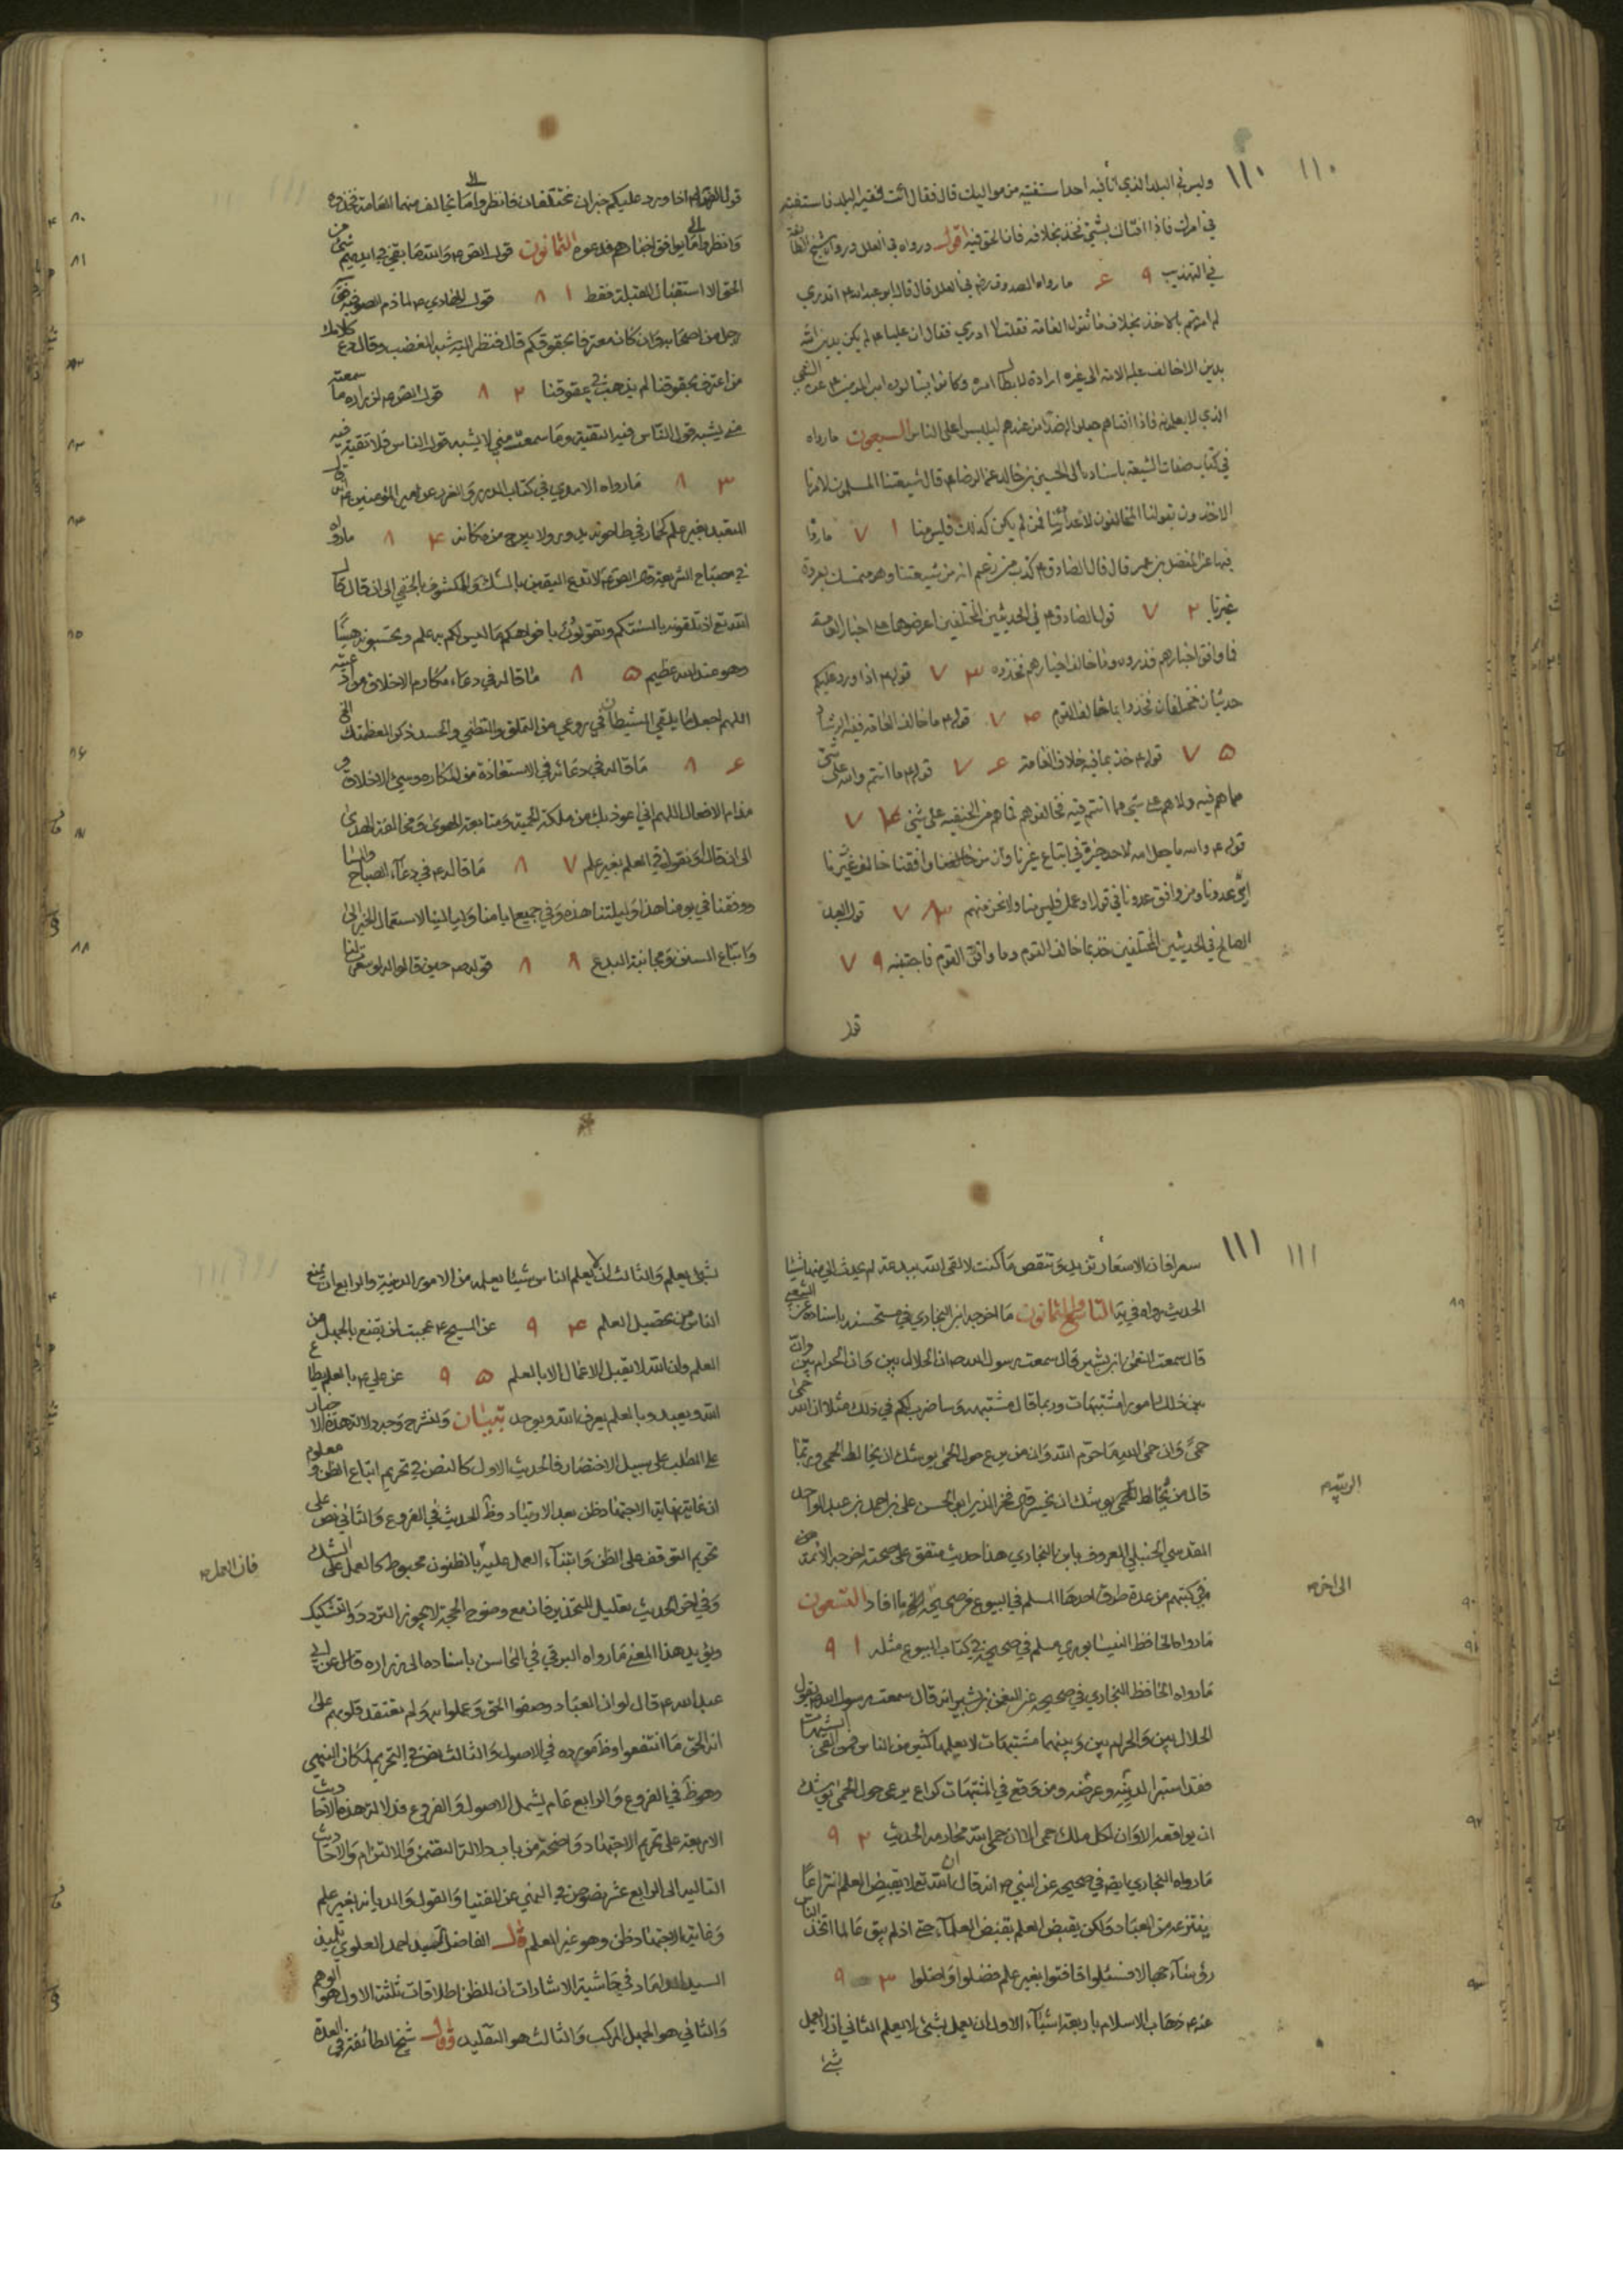 ١١٠ ١١٠
وليس في البلد الذي انا فيه احد استفتيه من مواليك قال فقال ائت فقيه البلد فاستفته
في امرك فاذا افتاك بشيء فخذ بخلافه فان الحق فيه اقول ورواه في العلل ورواه شيخ الطائفة
في التهذيب ٩ ٤ ما رواه الصدوق رض في العلل قال قال ابو عبد الله ع اتدري
لم امرتم بالاخذ بخلاف ما تقول العامة فقلت لا ادري فقال ان عليا ع لم يكن يدين الله
بدين الا خالف عليه الامة الى غيره ارادة لابطال امره وكانوا يسالون امير المؤمنين ع عن الشيء
الذي لا يعلمونه فاذا افتاهم جعلوا له ضدا من عندهم ليلبسوا على الناس السبعون ما رواه
في كتاب صفات الشيعة باسناده الى الحسين بن خالد عن الرضا ع قال شيعتنا المسلمون لامرنا
الاخذون بقولنا المخالفون لاعدائنا فمن لم يكن كذلك فليس منا ١ ٧ ما رواه
فيها عن المفضل بن عمر قال قال الصادق ع كذب من زعم انه من شيعتنا وهو متمسك بعروة
غيرنا ٢ ٧ قول الصادق ع في الحديثين المختلفين اعرضوهما على اخبار العامة
فما وافق اخبارهم فذروه وما خالف اخبارهم فخذوه ٣ ٧ قوله ع اذا ورد عليكم
حديثان مختلفان فخذوا بما خالف القوم ٤ ٧ قوله ع ما خالف العامة ففيه الرشاد
٥ ٧ قوله ع خذ بما فيه خلاف العامة ٦ ٧ قوله ع ما انتم والله على شيء
مما هم فيه ولا هم على شيء مما انتم فيه فخالفوهم فما هم من الحنيفية على شيء ٧ ٧
قوله ع والله ما جعل الله لاحد خيرة في اتباع غيرنا وان من وافقنا خالف عدونا
ومن وافق عدونا في قول او عمل فليس منا ولا نحن منهم ٨ ٧ قول العبد
الصالح في الحديثين المختلفين خذ بما خالف القوم وما وافق القوم فاجتنبه ٩ ٧
قول
قول الرضا ع اذا ورد عليكم خبران مختلفان فانظروا الى ما يخالف منهما العامة فخذوه
وانظروا الى ما يوافق اخبارهم فدعوه الثمانون قول الصادق ع والله ما بقي في ايديهم شيء من
الحق الا استقبال القبلة فقط ١ ٨ قول الهادي ع لما ذم الصوفية
رجل من اصحابه وان كان معترفا بحقوقكم قال فنظر اليه شبه المغضب وقال دع
من اعترف بحقوقنا لم يذهب في عقوقنا ٢ ٨ قول الصادق ع لزرارة ما سمعته
مني يشبه قول الناس فيه التقية وما سمعت مني لا يشبه قول الناس فلا تقية فيه
٣ ٨ ما رواه الامدي في كتاب الدرر والغرر عن امير المؤمنين ع
المتعبد بغير علم كحمار في طاحونة يدور ولا يبرح من مكانه ٤ ٨ ما رواه
في مصباح الشريعة قال الصادق ع لا تدع اليقين بالشك والمكشوف بالخفي الى ان قال قال
الله تع اذ تلقونه بالسنتكم وتقولون بافواهكم ما ليس لكم به علم وتحسبونه هينا
وهو عند الله عظيم ٥ ٨ ما قاله في دعاء مكارم الاخلاق
اللهم اجعل ما يلقي الشيطان في روعي من التمني والتظني والحسد ذكرا لعظمتك
٦ ٨ ما قاله في دعائه في الاستعاذة من المكاره وسيئ الاخلاق
ومذام الافعال اللهم اني اعوذ بك من ملكة الحمية ومتابعة الهوى ومخالفة الهدى
الى ان قال او نقول في العلم بغير علم ٧ ٨ ما قاله ع في دعاء الصباح والمساء
ووفقنا في يومنا هذا وليلتنا هذه وفي جميع ايامنا وليالينا لاستعمال الخير
واتباع السنن ومجانبة البدع ٨ ٨ قوله ص حين قالوا له لو سعرت لنا
٨٠
٨١
٨٢
٨٣
٨٤
٨٥
٨٦
٨٧
٨٨
١١١ ١١١
سعرا فان الاسعار تزيد وتنقص ما كنت لالقى الله ببدعة لم يحدث الي فيها شيئا
الحديث رواه في يه التاسع والثمانون ما اخرجه ابن البخاري في باسناده عن الشعبي
قال سمعت النعمان بن بشير قال سمعت رسول الله ص ان الحلال بين وان الحرام بين وان
بين ذلك امورا مشتبهات وربما قال مشتبهة وساضرب لكم في ذلك مثلا ان الله حمى
حمى وان حمى الله ما حرم الله وان من يرع حول الحمى يوشك ان يخالط الحمى وربما
قال من يخالط الحمى يوشك ان يجسر قال فخر الدين ابو الحسن علي بن احمد بن عبد الواحد
المقدسي الحنبلي المعروف بابن البخاري هذا حديث متفق على صحته اخرجه الائمة
في كتبهم من عدة طرق احدها المسلم في البيوع في صحيحه الى ما افاد التسعون
ما رواه الحافظ النيشابوري مسلم في صحيحه في كتاب البيوع مثله ١ ٩
ما رواه الحافظ البخاري في صحيحه عن النعمن بن بشير انه قال سمعت رسول الله ص يقول
الحلال بين والحرام بين وبينهما مشتبهات لا يعلمها كثير من الناس فمن اتقى الشبهات
فقد استبرا لدينه وعرضه ومن وقع في المشتبهات كراع يرعى حول الحمى يوشك
ان يواقعه الا وان لكل ملك حمى الا ان حمى الله محارمه الحديث ٢ ٩
ما رواه البخاري ايضا في صحيحه عن النبي ص انه قال ان الله تع لا يقبض العلم انتزاعا
ينتزعه من العباد ولكن يقبض العلم بقبض العلماء حتى اذا لم يبق عالما اتخذ الناس
رؤساء جهالا فسئلوا فافتوا بغير علم فضلوا واضلوا ٣ ٩
عنه ع ذهاب الاسلام باربعة اشياء الاول ان يعمل بشيء لا يعلم الثاني ان لا يعمل
بشيء
الى اخره
٨٩
٩٠
٩١
٩٢
٩٣
بشيء يعلم والثالث ان لا يعلم الناس شيئا يعلمه من الامور الدينية والرابع ان يمنع
الناس من تحصيل العلم ٤ ٩ عن المسيح ع عجبت لمن يقنع بالجهل من
العلم وان الله لا يقبل الاعمال الا بالعلم ٥ ٩ عن علي ع بالعلم يطاع
الله ويعبد وبالعلم يعرف الله ويوحد تبيان ولنشرح وجه دلالة هذه الاخبار
على المطلب على سبيل الاختصار فالحديث الاول كالنص في تحريم اتباع الظن ومعلوم
ان غاية نهاية الاجتهاد ظن بعد الارتياد وظ الحديث في الفروع والثاني نص على
تحريم التوقف على الظن وابتناء العمل عليه بالظنون محبوط كالعمل على الشك
وفي اخر الحديث تعليل للتحذير فان مع وضوح الحجة لا يجوز التردد والتشكيك
ويؤيد هذا المعنى ما رواه البرقي في المحاسن باسناده الى زرارة قال عن ابي
عبد الله ع قال لو ان العباد وصفوا الحق وعملوا به ولم تعتقد قلوبهم على
انه الحق ما انتفعوا وظ مورده في الاصول والثالث نص في التحريم لمكان النهي
وهو ظ في الفروع والرابع عام يشمل الاصول والفروع فدلالة هذه الاحاديث
الاربعة على تحريم الاجتهاد واضحة من باب دلالة التضمن والالتزام والاحاديث
التالية الى الرابع عشر نصوص في النهي عن الفتيا والقول والديانة بغير علم
وغاية الاجتهاد ظن وهو غير العلم قال الفاضل السيد احمد العلوي تلميذ
السيد الداماد في حاشية الاشارات ان للظن اطلاقات ثلثة الاول هو الوهم
والثاني هو الجهل المركب والثالث هو التقليد وقال شيخ الطائفة في العدة
فان العمل